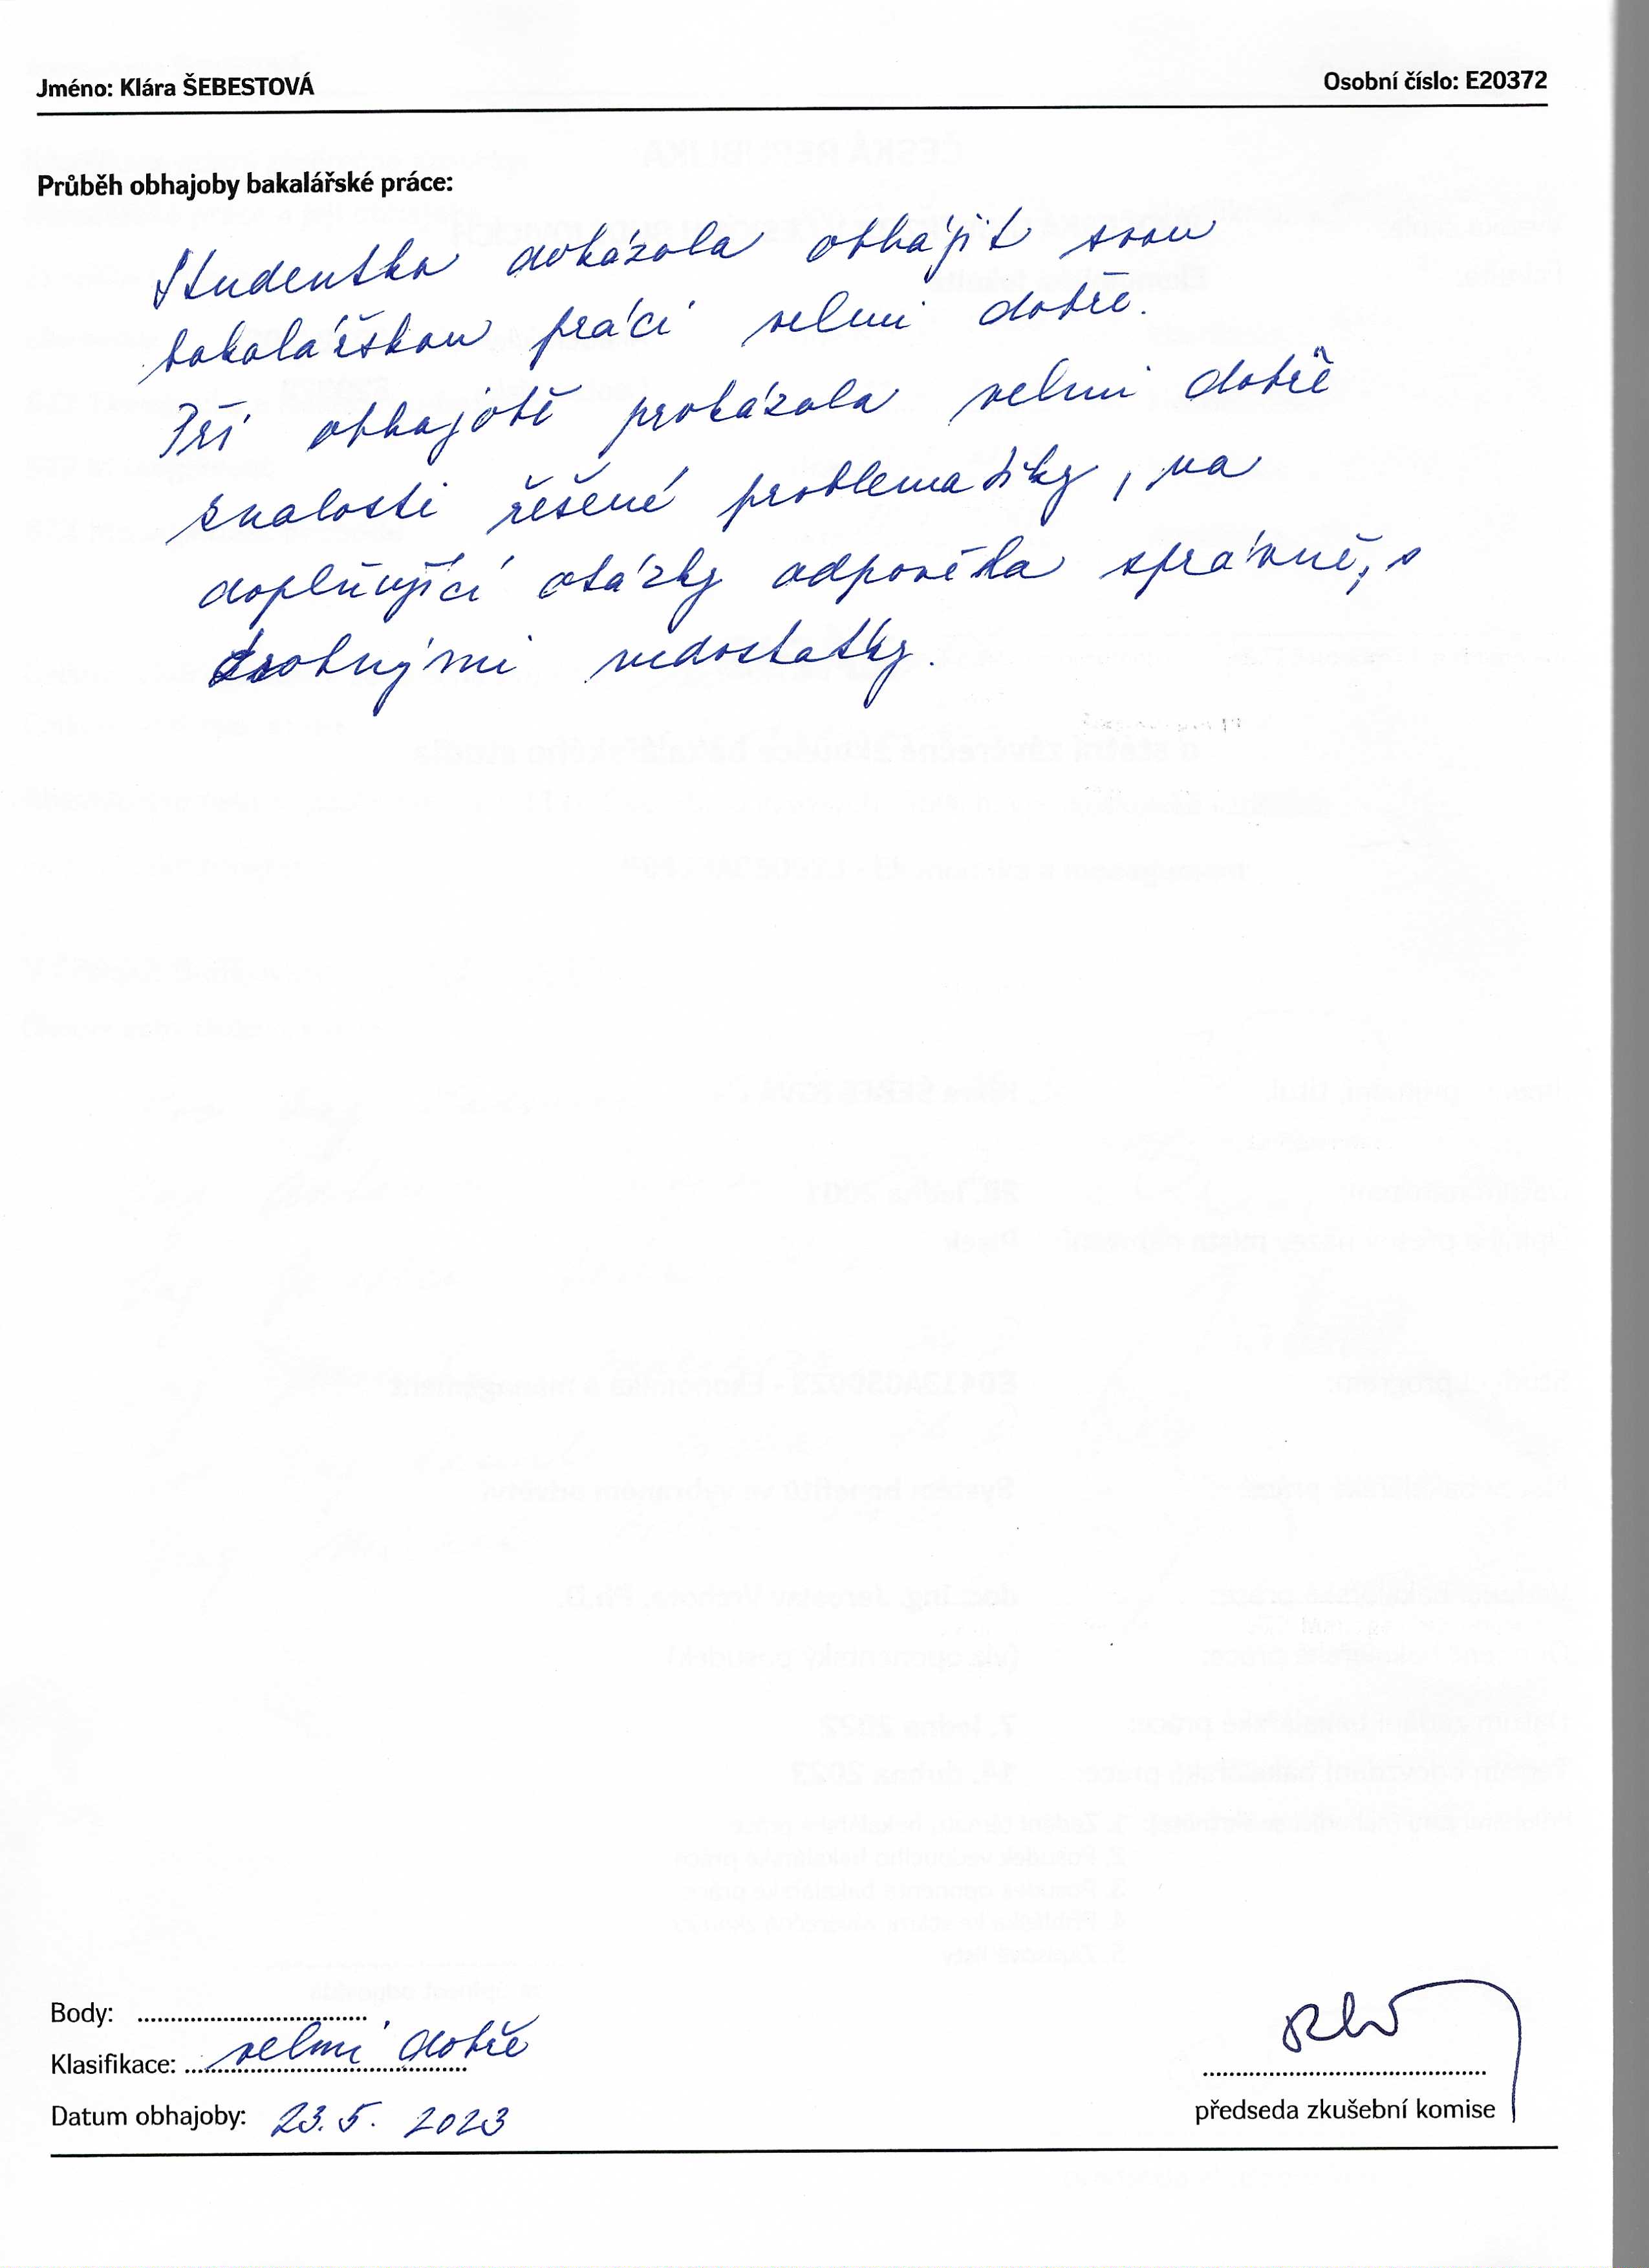 Jméno: Klára ŠEBESTOVÁ Osobní číslo: E20372
Průběh obhajoby bakalářské práce:
Studentka dokázala obhájit svou
bakalářskou práci velmi dobře.
Při obhajobě prokázala velmi dobře
znalosti řešené problematiky, na
doplňující otázky odpověděla správně, s
drobnými nedostatky.
Body: ........................................
Klasifikace: velmi dobře
Datum obhajoby: 23.5. 2023
předseda zkušební komise